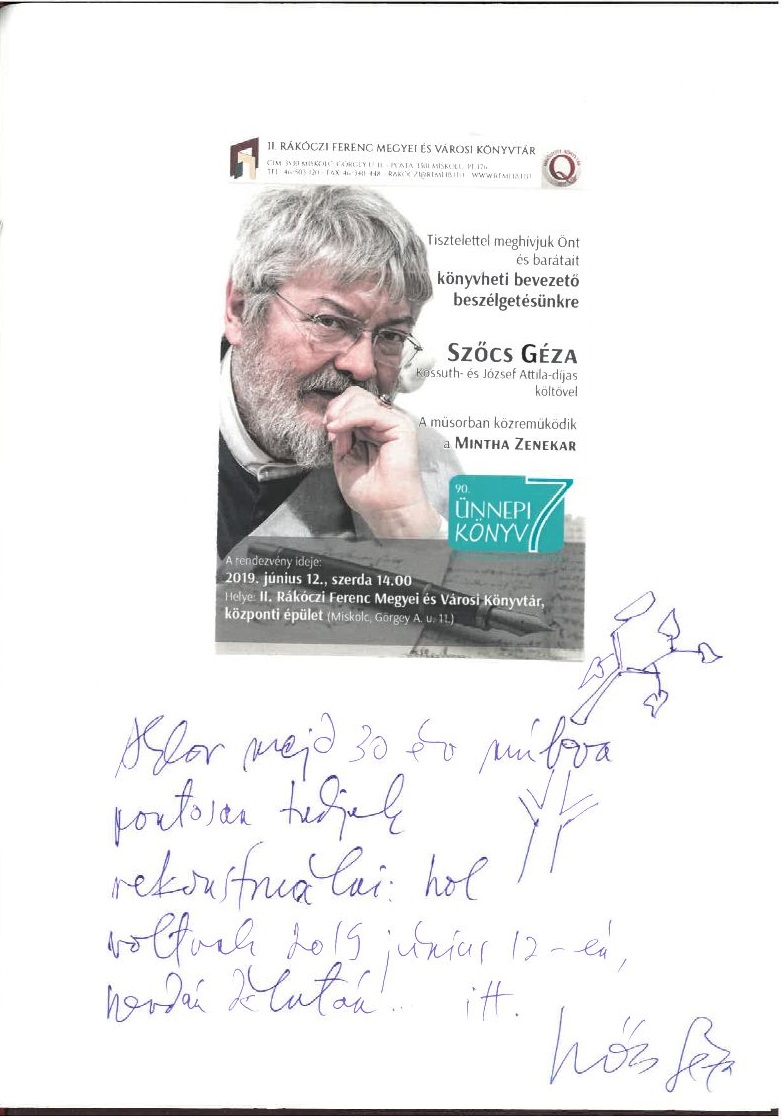 II. RÁKÓCZI FERENC MEGYEI ÉS VÁROSI KÖNYVTÁR
CÍM: 3530 MISKOLC, GÖRGEY U. 11. · POSTA: 3501 MISKOLC, PF. 176.
TEL.: 46/503-920 · FAX: 46/340-448 ·
Q
Tisztelettel meghívjuk Önt
és barátait
könyvheti bevezető
beszélgetésünkre
SZŐCS GÉZA
Kossuth- és József Attila-díjas
költővel
A műsorban közreműködik
a MINTHA ZENEKAR
90.
ÜNNEPI
KÖNYV7
A rendezvény ideje:
2019. június 12., szerda 14.00
Helye: II. Rákóczi Ferenc Megyei és Városi Könyvtár,
központi épület (Miskolc, Görgey A. u. 11.)
majd 30 év múlva
pontosan tudjuk
rekonstruálni: hol
voltunk 2019 június 12-én,
szerdán délután... itt.
Szőcs Géza